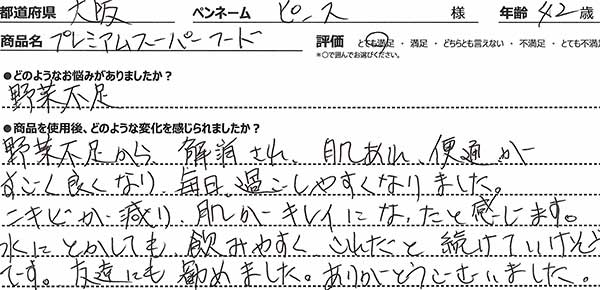 都道府県 大阪 ペンネーム ピンス 様 年齢 42歳
商品名 プレミアムスーパーフード 評価 とても満足・満足・どちらとも言えない・不満足・とても不満
*○で囲んでお選びください。
●どのようなお悩みがありましたか？
野菜不足
●商品を使用後、どのような変化を感じられましたか？
野菜不足から、解消され、肌あれ、便通が
すごく良くなり、毎日、過ごしやすくなりました。
ニキビが減り、肌がキレイになったと感じます。
水にとかしても、飲みやすく、これだと続けていけそう
です。友達にも勧めました。ありがとうございました。